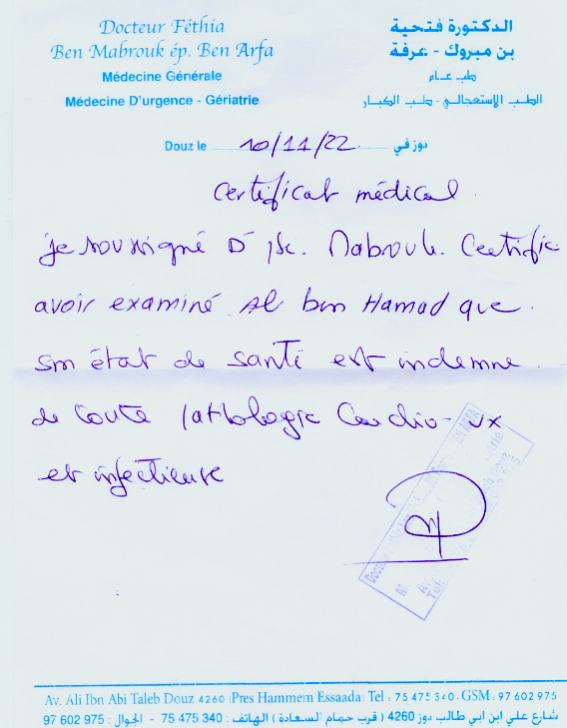 Docteur Féthia
Ben Mabrouk ép. Ben Arfa
Médecine Générale
Médecine D'urgence - Gériatrie
الدكتورة فتحية
بن مبروك - عرفة
طب عام
الطب الإستعجالي - طب الكبار
Douz le 10/11/22 دوز في
Certificat médical
je soussigné Dr Mabrouk. Certifie
avoir examiné Al ben Hamad que
son état de santé est indemne
de toute pathologie Cardio-vx
et infectieuse
Av. Ali Ibn Abi Taleb Douz 4260 (Pres Hammem Essaada) Tel : 75 475 340 - GSM : 97 602 975
شارع علي ابن ابي طالب دوز 4260 ( قرب حمام السعادة ) الهاتف : 340 475 75 - الجوال : 975 602 97